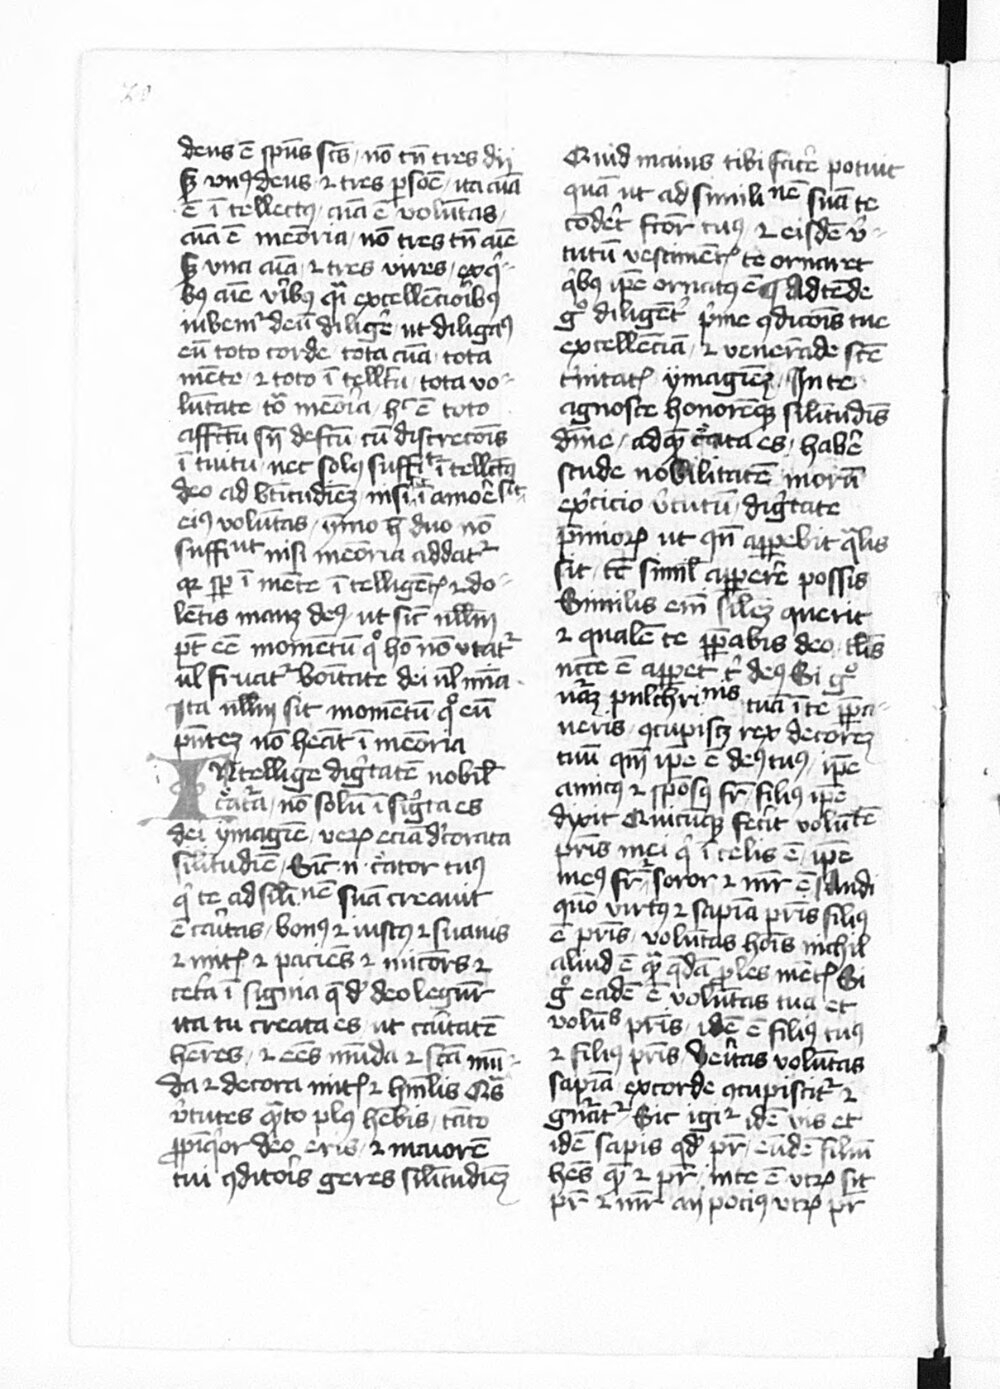 20
deus ē spūs scs / nō tn̄ tres dij
sꝫ vnꝰ deus ⁊ tres psōe / ita aīa
ē ītellectꝰ / aīa ē volūtas /
aīa ē meōria / nō tres tn̄ aīe
sꝫ vna aīa ⁊ tres vires / exqͥ-
bꝰ aīe virͥbꝰ qͣi excellēciorͥbꝰ
iubemͬ deū diligē / ut diligaꝰ
eū toto corde / tota aīa / tota
mēte / ⁊ toto ītellcū / tota vo-
lūtate / tō meōria / hͨ ē toto
affctū sn̄ defcū / cū discrecōis
ītuitu / nec solꝰ suffiͭ ītellcꝰ
deo ad btitudiēꝫ nisi ī amoē sit
eiꝰ volūtas / ȳmo h̄ duo nō
suffiūt nisi meōria addatͬ
qͣ sp̄ ī mēte ītelligētꝭ ⁊ do-
lētis manꝫ deꝰ / ut sic nllm̄
pt̄ eē momētū qͦ hō nō vtatͬ
ul̄ fruatͬ boītate dei ul̄ mīa ·
Ita nllm̄ sit momētū qͦ eū
pn̄teꝫ nō heāt ī meōria
INtellige digͥtatē nobil̄
cͥatͥa / nō solū ī sigͥta es
dei ȳmagiē / veꝝ eciā dͨorata
silitudiē / Sic n̄ · cͥator tuꝰ
qͥ te ad sili nē suā creauit
ē caͥtas / bonꝰ ⁊ iustꝰ ⁊ suauis
⁊ mitꝭ ⁊ paciēs ⁊ micōrs ⁊
cetͥa īsignia q̄ dͤ deo legūr
ita tu creata es / ut caͥtatē
hēres / ⁊ eēs mūda ⁊ scā mū-
da ⁊ decora mitꝭ ⁊ hmīlis Qͣs
vͥtutes qͣto plꝰ hēbis / tāto
ꝓpīqͥor deo eris / ⁊ maiorē
tui ꝯditoīs geres silītudiēꝫ
Quid maius tibi facē potuit
quā ut ad simili nē suā te
cōdet fcōr tuꝰ / ⁊ eisdē vͥ-
tutū vestimētꝭ te ornaret
qͥbꝰ ipe ornatꝰ ē Adtēde
gͦ diligētͥ pͥme ꝯdicōis tue
excellēciā / ⁊ venerāde scē
tͥnitatꝭ ȳmagiēꝫ / In te
agnosce honorēꝙ silitudis
dīne / ad qͣ cͥata es / habē
stude nobilitatē morū
exͨcicio vͥtutū / digͥtate
pͥmioꝝ ut qn̄ apꝑebit qͣlis
sit / tē simil̄ apꝑerē possis
Similis em̄ silēꝫ querit
⁊ qualē te ꝓpabis deo / tlis
ncͨe ē appet tͥ deꝰ Si gͦ
nͣꝫ pulchri nis tuā ī te ꝓpa-
ueris / ꝯcupiscꝫ rex decorēꝫ
tuū qm̄ ipe ē deꝰ tuꝰ / ipe
amicꝰ ⁊ spōsꝰ / fr̄ / filiꝰ ipe
dixit Quicūqꝫ fecit volūtē
pris mei qͥ ī celis ē / ipe
meꝰ fr̄ / soror ⁊ mr̄ ē / Audi
quō virtꝰ ⁊ sapīa pris filiꝰ
ē pris / volūtas hoīs nichil
aliud ē qͣ qͣdā ꝓles mētꝭ Si
gͦ eadē ē volūtas tua et
volūs pris / idē ē filiꝰ tuꝰ
⁊ filiꝰ pris / veͥtas volūtas
sapīa / ex corde ꝯcupiscitͬ ⁊
gnͥatͬ / Sic igiͬ idē vis et
idē sapis qd̄ pr̄ / eūdē filiū
hēs qͣ ⁊ pr̄ / in te ē vtꝝ sit
pr̄ ⁊ mr̄ an̄ pociꝰ vtꝝ pr̄